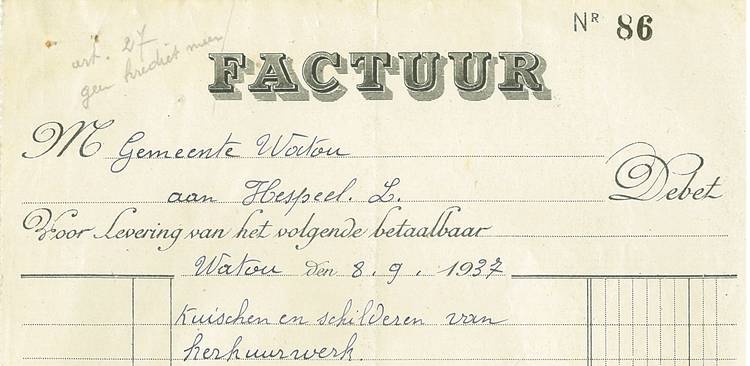 Nr 86
art. 27
geen krediet meer
FACTUUR
M Gemeente Watou
aan Hespeel. L. Debet
Voor levering van het volgende betaalbaar
Watou den 8. 9. 1937
Kuischen en schilderen van
herhuurwerk.